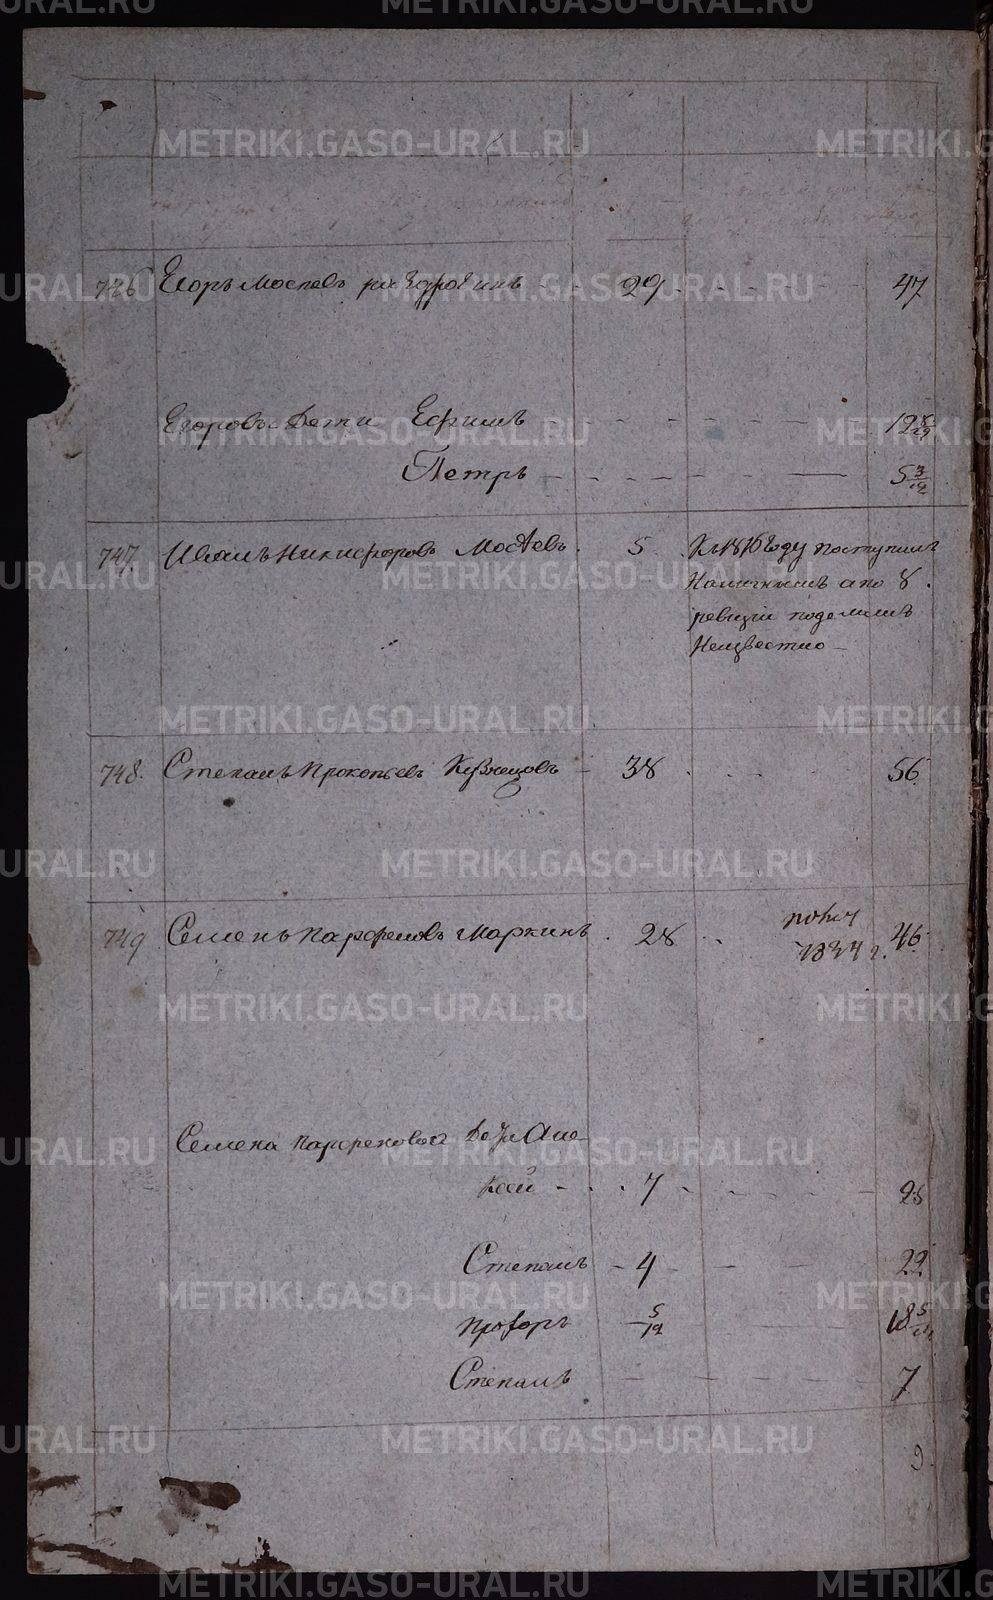 METRIKI.GASO-URAL.RU
746 Егоръ 29 47
Егоровы дети Ефимъ 12 8/29
Петръ 5 3/12
747. Иванъ Никифоровъ Мосѣевъ 5 Въ 1816 году поступилъ
а по 8
ревизіи
Неизвестно
748. Степанъ Прокопьевъ Кузнецовъ 38 56
749 Семенъ Парфеновъ Маркинъ 28 46
1834 г.
Семена Парфенова дети Але-
ксей 7 25
Степанъ 4 22
Прохоръ 5/12 18 5/12
Степанъ 7
9